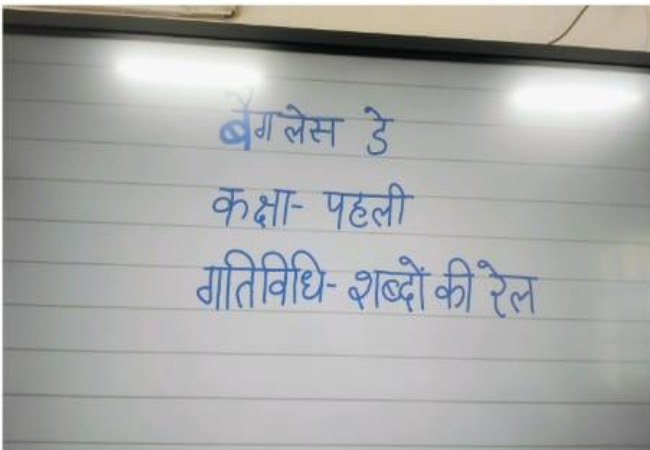 बैग लेस डे
कक्षा- पहली
गतिविधि- शब्दों की रेल